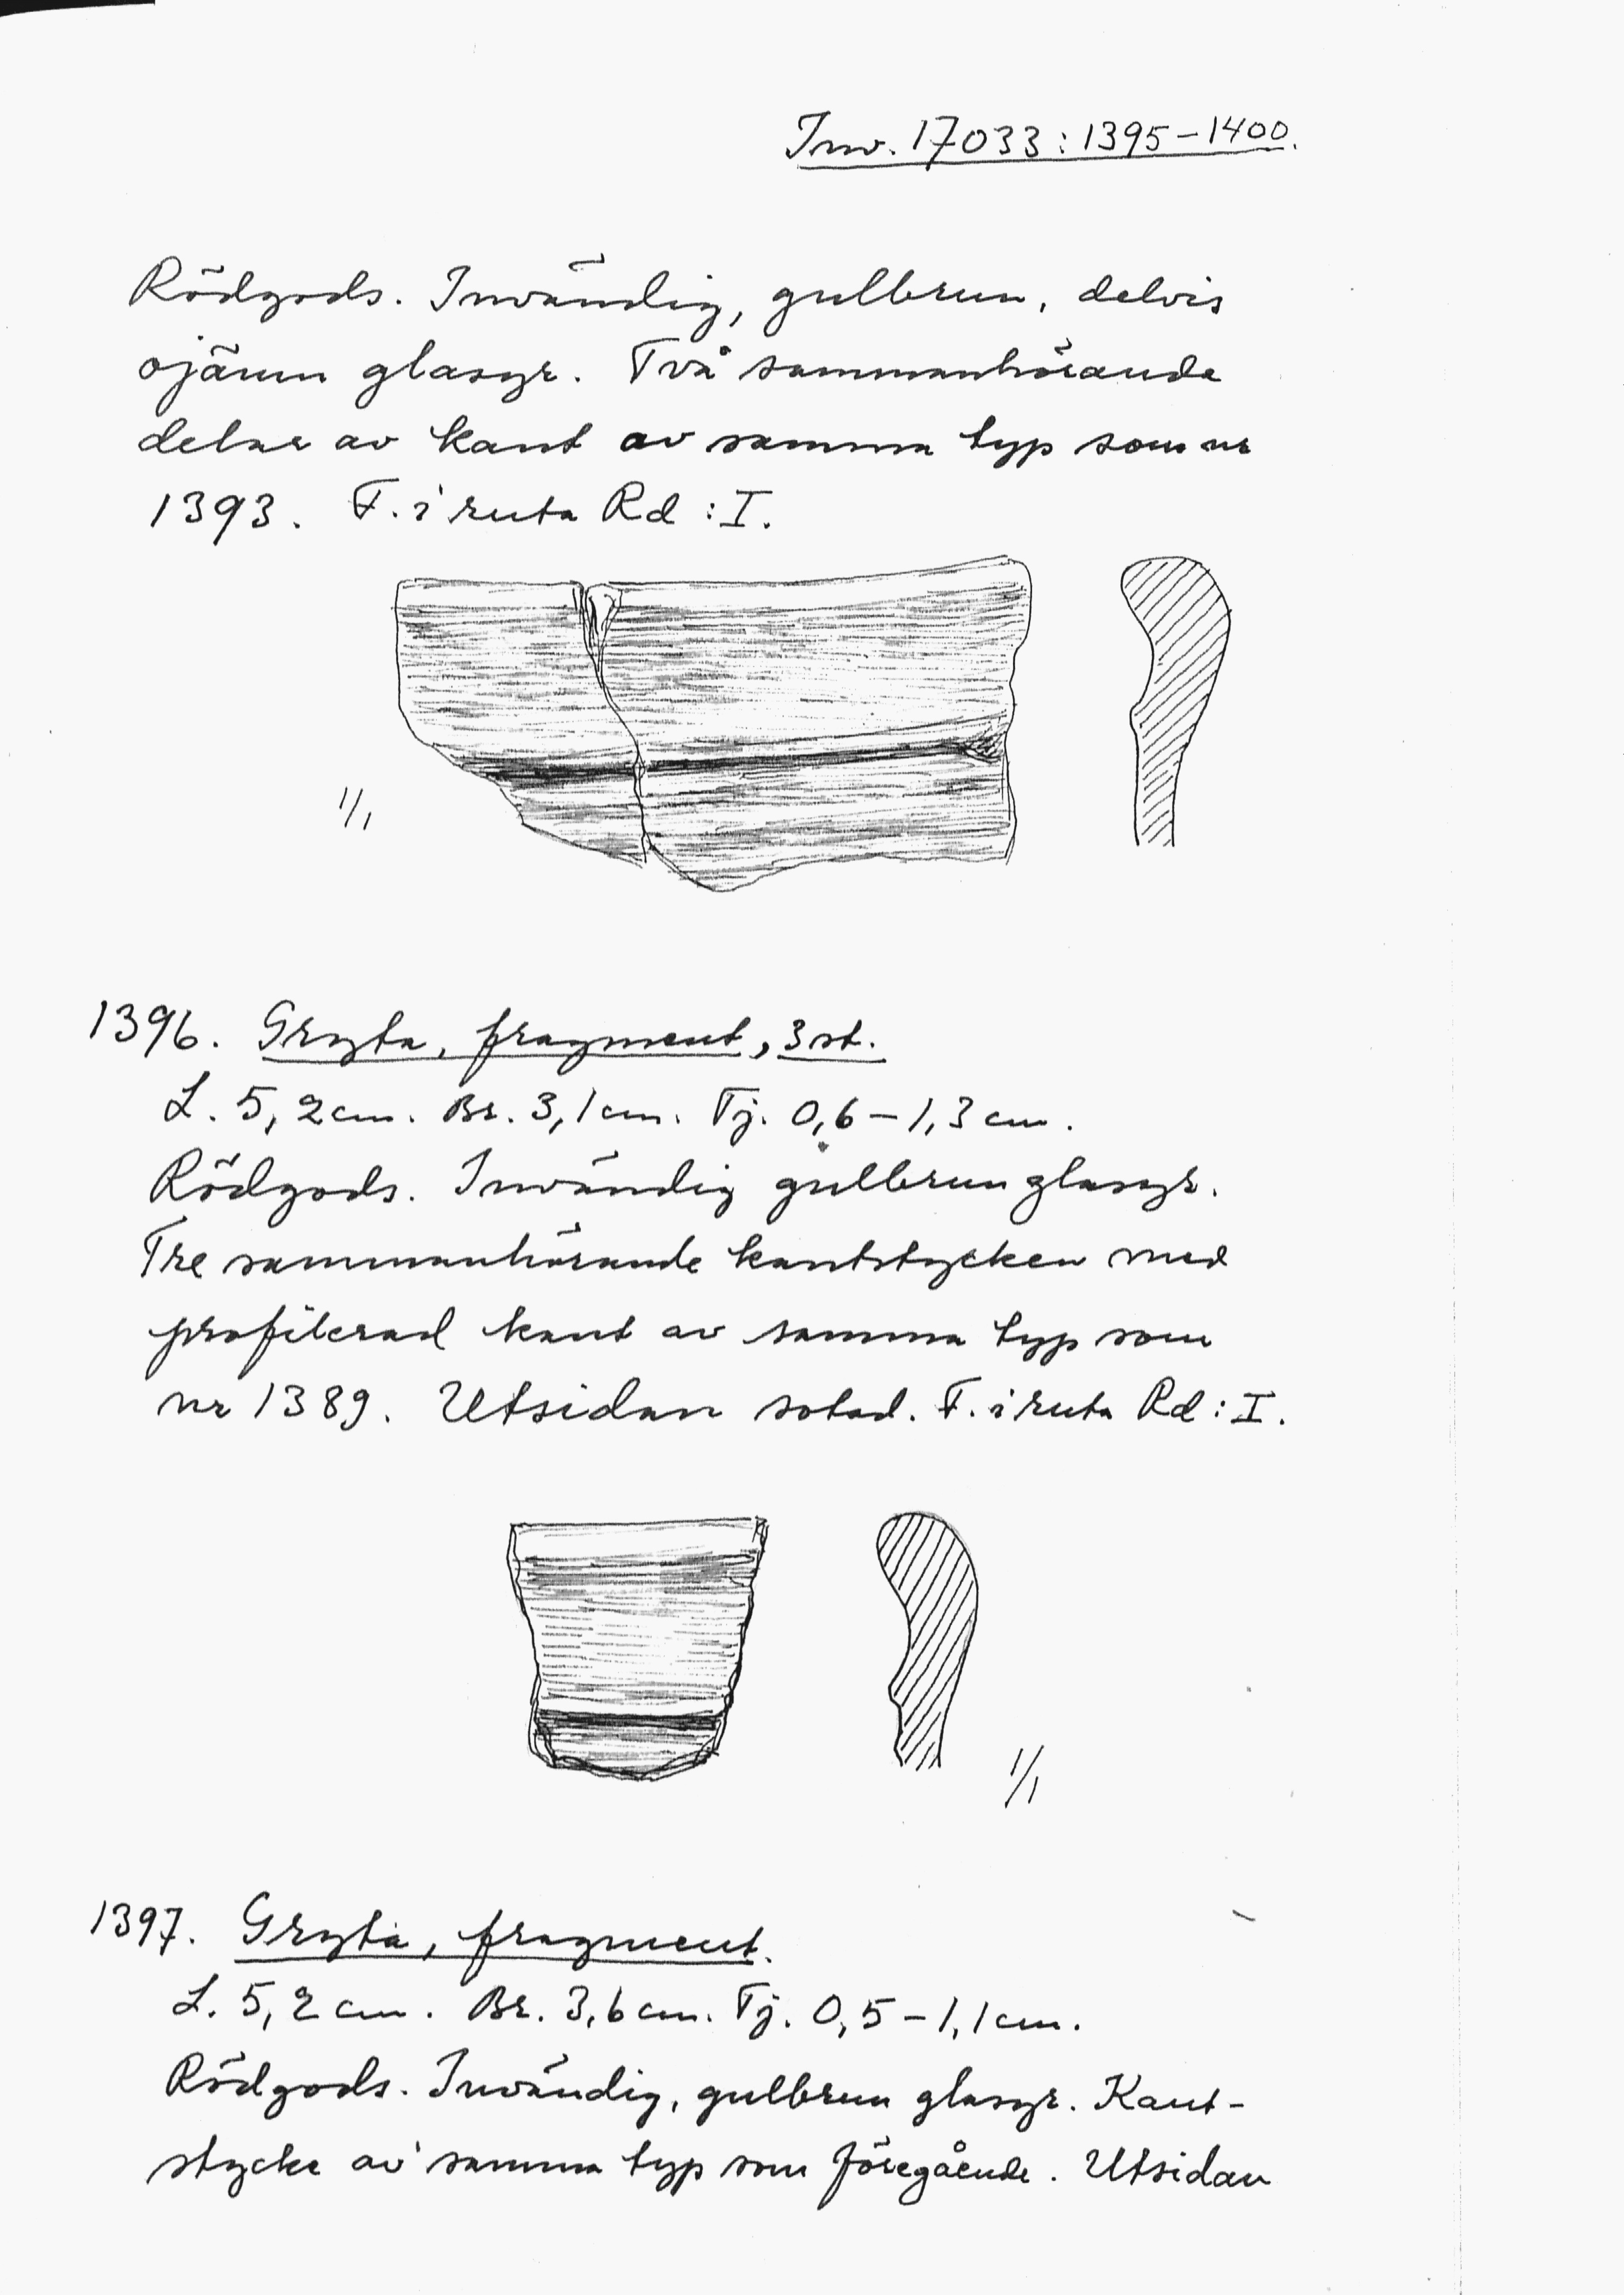 Inv. 17033:1395-1400.
Rödgods. Invändig, gulbrun, delvis
ojämn glasyr. Två sammanhörande
delar av kant av samma typ som nr
1393. F. i ruta Rd:I.
1/1
1396. Gryta, fragment, 3 st.
L. 5,2 cm. Br. 3,1 cm. Tj. 0,6-1,3 cm.
Rödgods. Invändig gulbrun glasyr.
Tre sammanhörande kantstycken med
profilerad kant av samma typ som
nr 1389. Utsidan sotad. F. i ruta Rd:I.
1/1
1397. Gryta, fragment.
L. 5,2 cm. Br. 3,6 cm. Tj. 0,5-1,1 cm.
Rödgods. Invändig, gulbrun glasyr. Kant-
stycke av samma typ som föregående. Utsidan